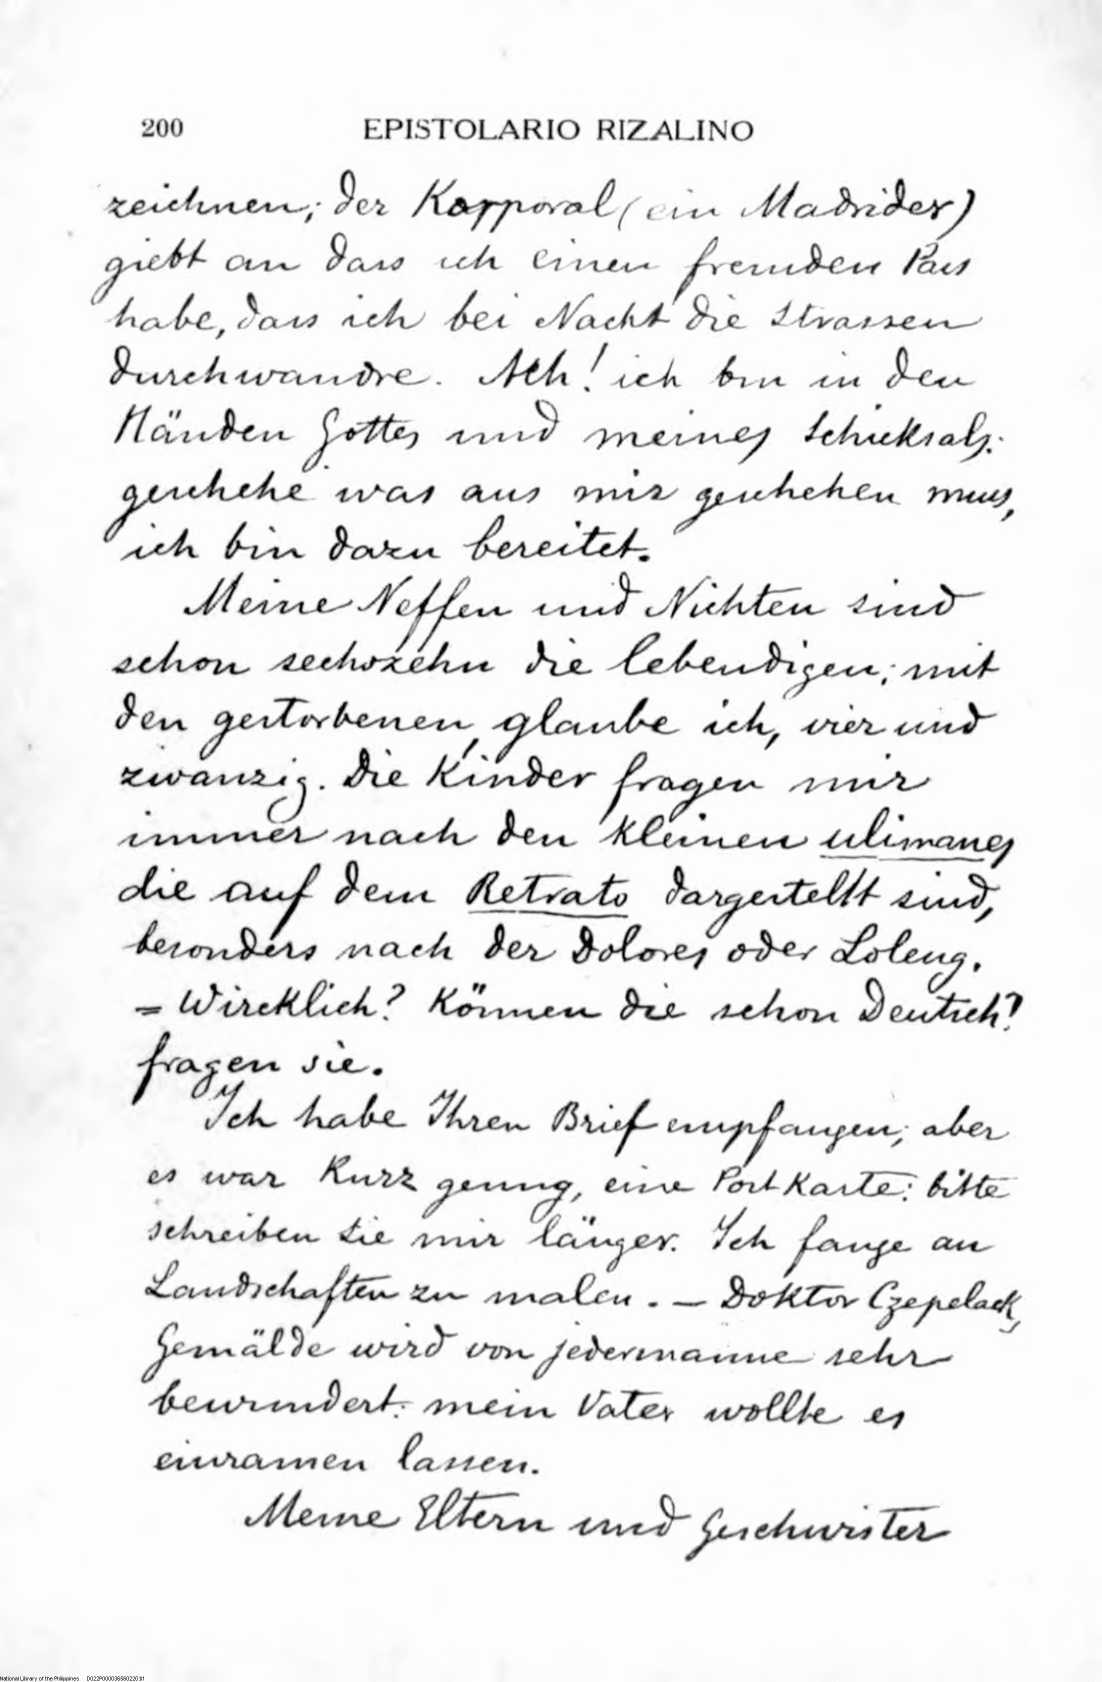 200 EPISTOLARIO RIZALINO
zeichnen; der Korporal (ein Madrider)
giebt an dass ich einen fremden Pass
habe, dass ich bei Nacht die Strassen
durchwandre. Ach! ich bin in den
Händen Gottes und meines Schicksals:
geschehe was aus mir geschehen muss,
ich bin dazu bereitet.
Meine Neffen und Nichten sind
schon sechszehn die lebendigen; mit
den gestorbenen, glaube ich, vier und
zwanzig. Die Kinder fragen mir
immer nach den kleinen ulimanes
die auf dem Retrato dargestellt sind,
besonders nach der Dolores oder Loleng.
= Wircklich? Können die schon Deutsch?
fragen sie.
Ich habe Ihren Brief empfangen; aber
es war Kurz genug, eine PostKarte: bitte
schreiben Sie mir länger. Ich fange an
Landschaften zu malen. — Doktor Czepelack,
Gemälde wird von jedermanne sehr
bewundert: mein Vater wollte es
einramen lassen.
Meine Eltern und Geschwister
National Library of the Philippines